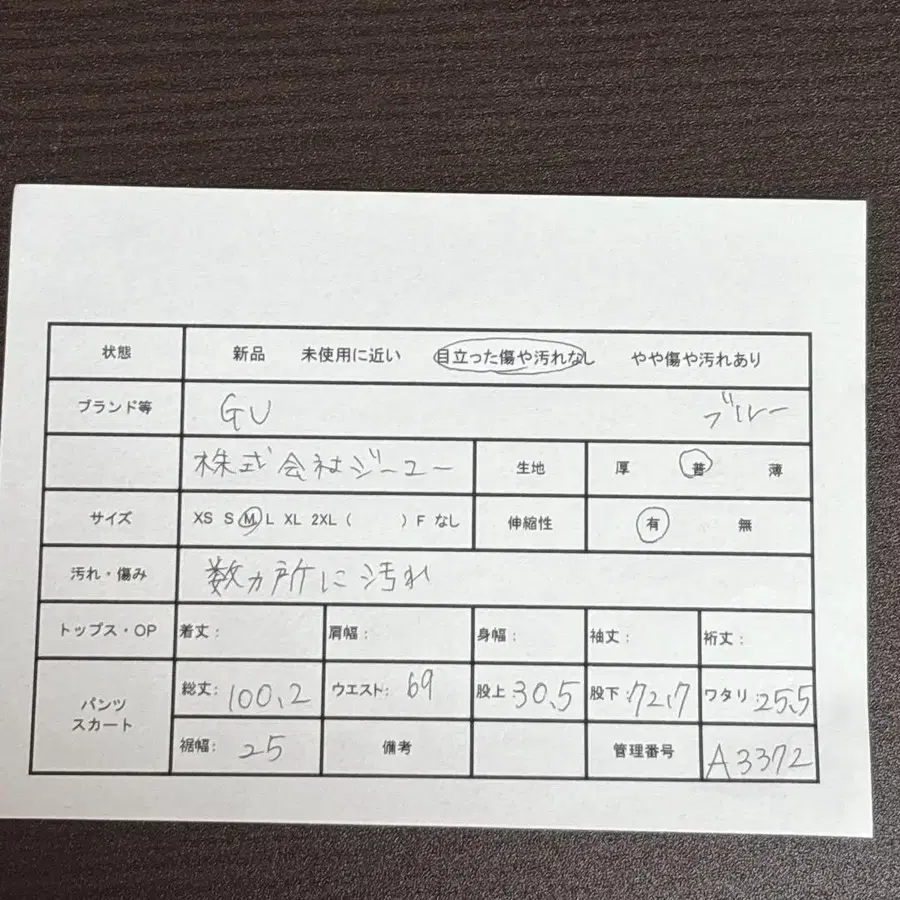 状態 新品 未使用に近い 目立った傷や汚れなし やや傷や汚れあり
ブランド等 GU ブルー
株式会社ジーユー 生地 厚 普 薄
サイズ XS S M L XL 2XL ( ) F なし 伸縮性 有 無
汚れ・傷み 数ヵ所に汚れ
トップス・OP 着丈: 肩幅: 身幅: 袖丈: 裄丈:
パンツ スカート 総丈: 100.2 ウエスト: 69 股上 30.5 股下: 72.7 ワタリ: 25.5
裾幅: 25 備考 管理番号 A3372